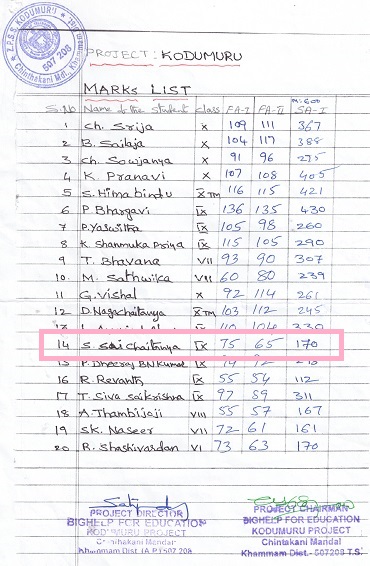 Z.P.S.S. KODUMURU
Chinthakani Mdl., Kha
507 208
PROJECT : KODUMURU
MARKS LIST
m-600
S.No Name of the student class FA-I FA-II SA-I
1 Ch. Srija X 109 111 367
2 B. Sailaja X 104 117 388
3 Ch. Sowjanya X 91 96 275
4 K. Pranavi X 107 108 405
5 S. Himabindu X TM 116 115 421
6 P. Bhargavi IX 136 135 430
7 P. Yaswitha IX 105 98 260
8 K. Shanmuka Priya IX 115 105 290
9 T. Bhavana VII 93 90 307
10. M. Sathwika VII 60 80 239
11 G. Vishal X 92 114 261
12 D. Nagachaitanya X TM 103 112 245
13 110 104 330
14 S. Sai Chaitanya IX 75 65 170
15 P. Dheeraj BN Kumar IX 72
16 R. Revanth IX 55 54 112
17 T. Siva Saikrishna IX 97 89 311
18 A. Thambiiaji VIII 55 57 167
19 SK. Naseer VII 72 61 161
20 R. Shashivardan VI 73 63 170
PROJECT DIRECTOR
BIGHELP FOR EDUCATION
KODUMURU PROJECT
Chinthakani Mandal
Khammam Dist. (A.P) 507 208
PROJECT CHAIRMAN
BIGHELP FOR EDUCATION
KODUMURU PROJECT
Chintakani Mandal
Khammam Dist.- 507208 T.S.